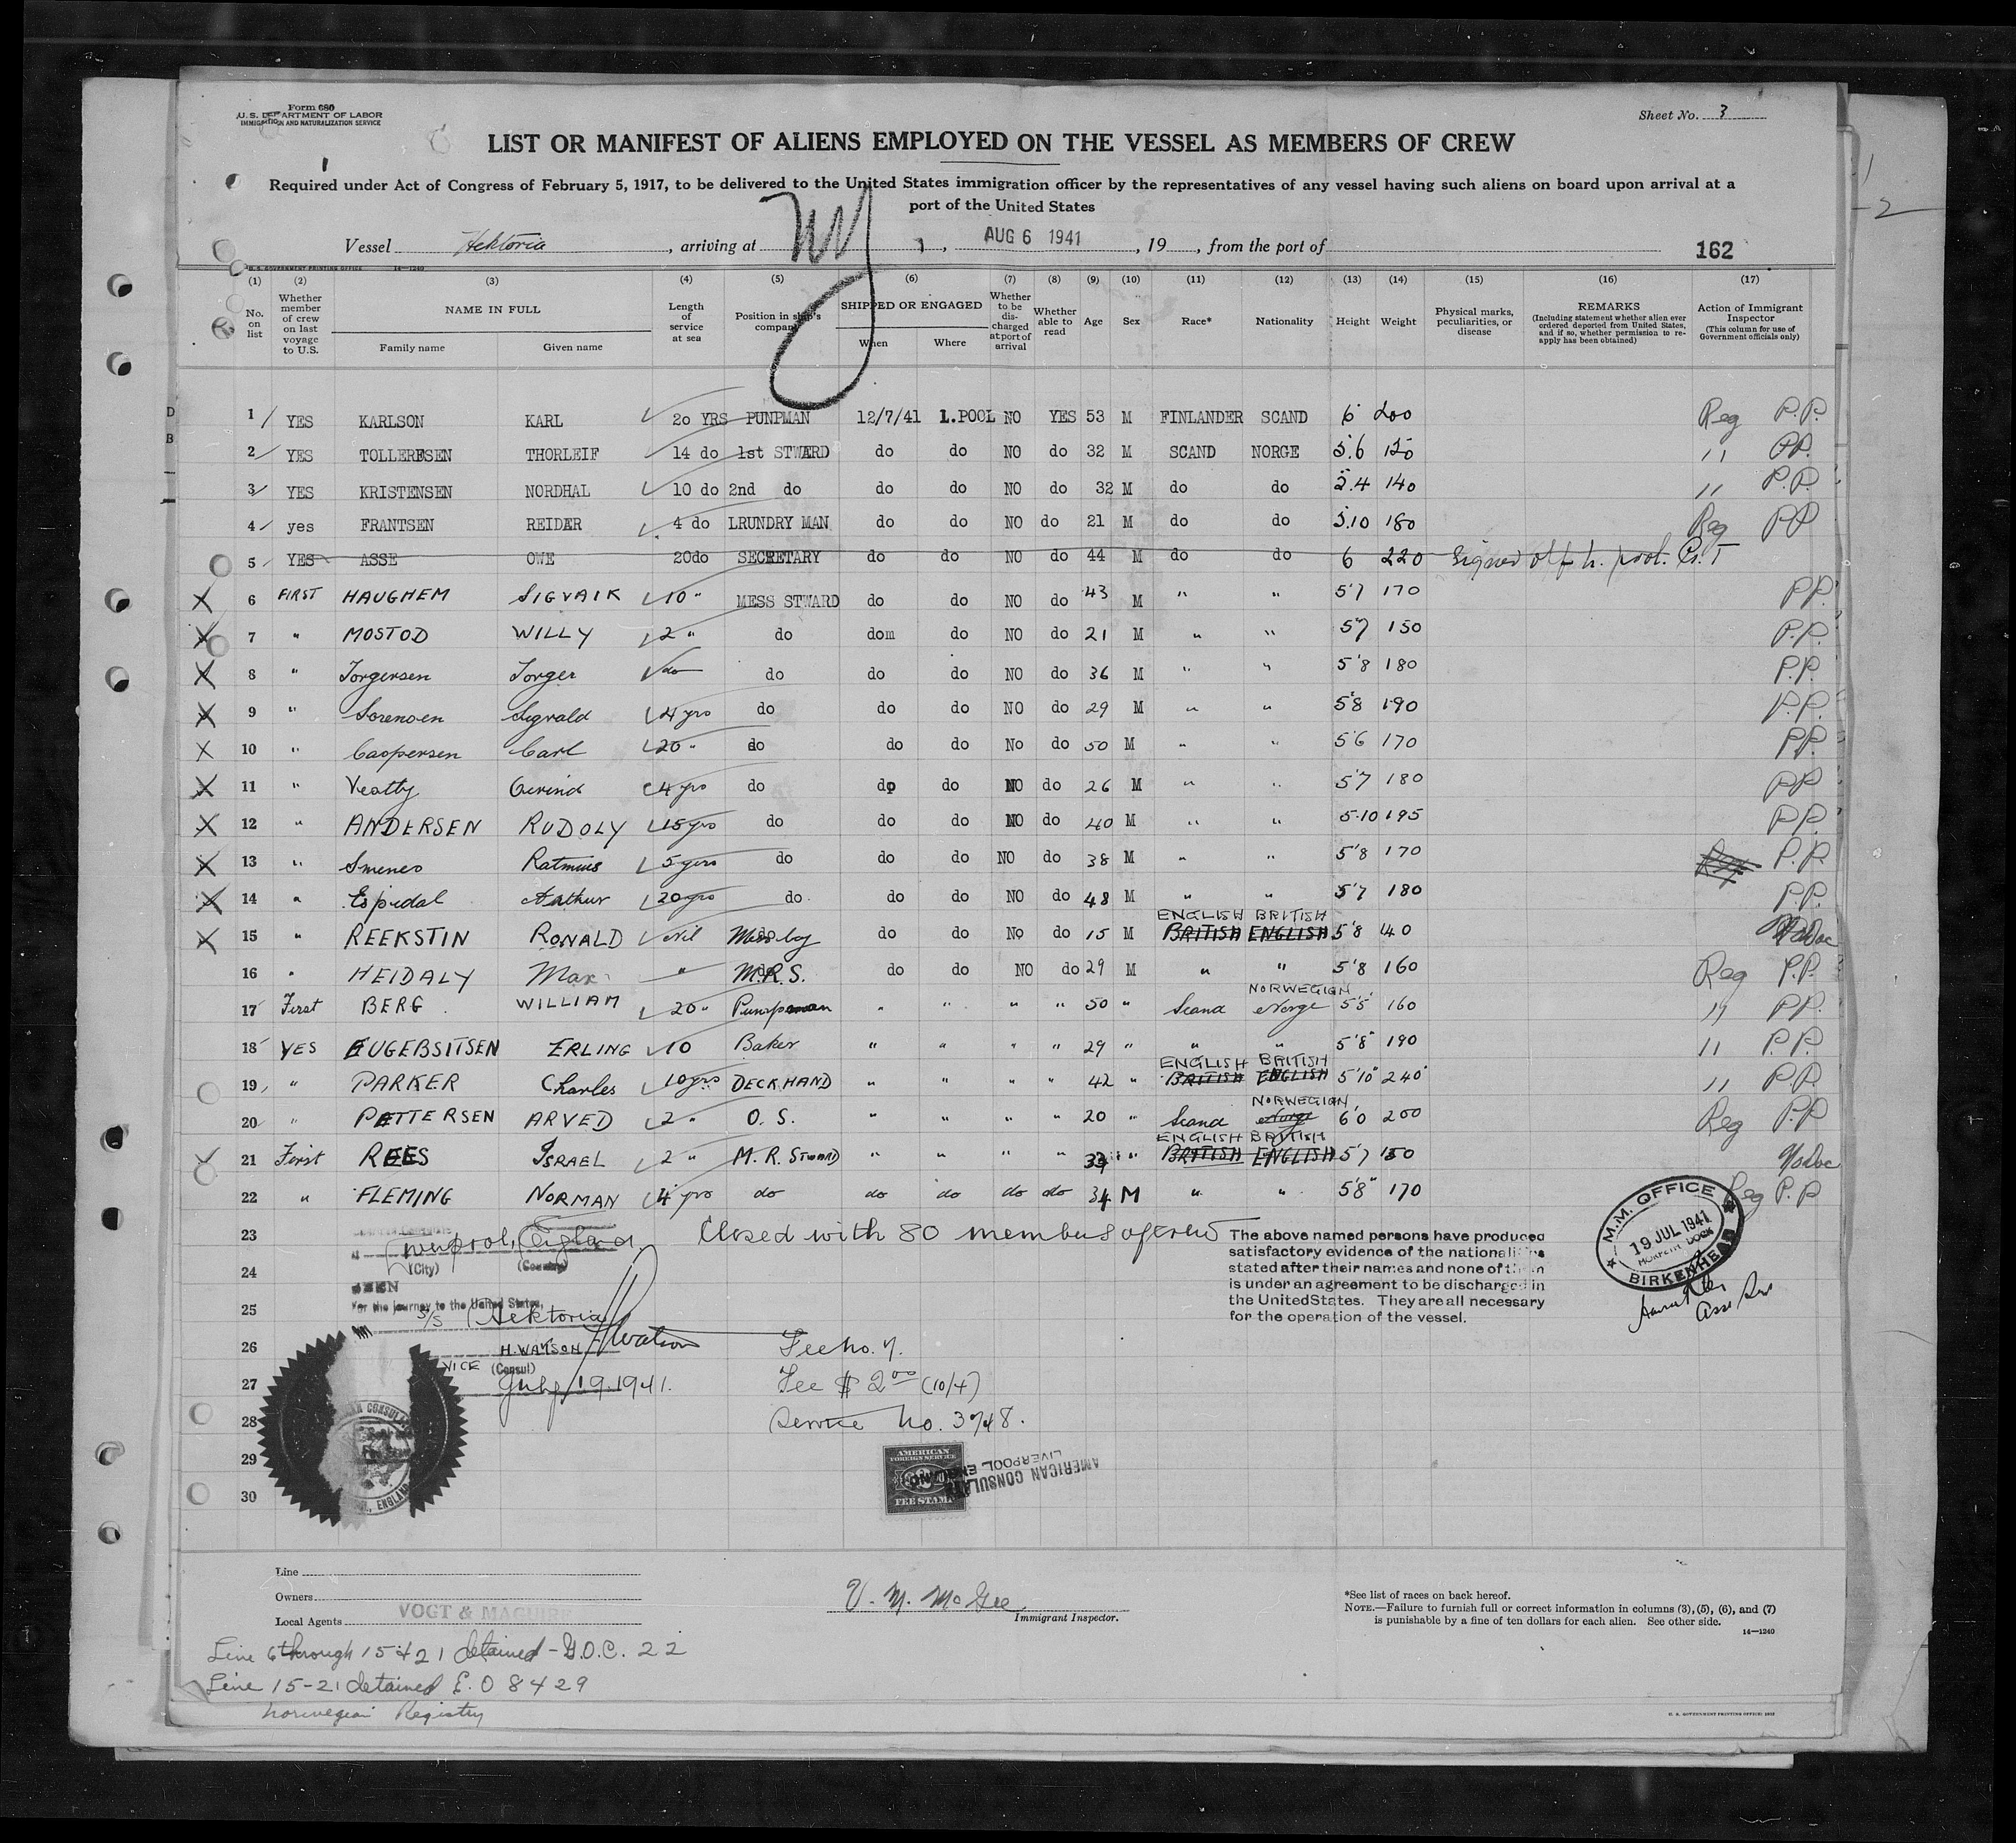 Form 680
U. S. DEPARTMENT OF LABOR
IMMIGRATION AND NATURALIZATION SERVICE
Sheet No. 3
LIST OR MANIFEST OF ALIENS EMPLOYED ON THE VESSEL AS MEMBERS OF CREW
Required under Act of Congress of February 5, 1917, to be delivered to the United States immigration officer by the representatives of any vessel having such aliens on board upon arrival at a
port of the United States
Vessel Hektoria, arriving at NY, AUG 6 1941, 19, from the port of
162
U. S. GOVERNMENT PRINTING OFFICE 14—1240
(1) (2) (3) (4) (5) (6) (7) (8) (9) (10) (11) (12) (13) (14) (15) (16) (17)
No. on list
Whether member of crew on last voyage to U.S.
NAME IN FULL
Family name Given name
Length of service at sea
Position in ship's company
SHIPPED OR ENGAGED
When Where
Whether to be discharged at port of arrival
Whether able to read
Age Sex Race* Nationality Height Weight
Physical marks, peculiarities, or disease
REMARKS
(Including statement whether alien ever ordered deported from United States, and if so, whether permission to reapply has been obtained)
Action of Immigrant Inspector
(This column for use of Government officials only)
1 YES KARLSON KARL 20 YRS PUNPMAN 12/7/41 L.POOL NO YES 53 M FINLANDER SCAND 6 200 Reg P.P.
2 YES TOLLERESEN THORLEIF 14 do 1st STWARD do do NO do 32 M SCAND NORGE 5.6 150 " PP.
3 YES KRISTENSEN NORDHAL 10 do 2nd do do do NO do 32 M do do 5.4 140 " P.P.
4 yes FRANTSEN REIDAR 4 do LRUNDRY MAN do do NO do 21 M do do 5.10 180 Reg PP
5 YES ASSE OWE 20do SECRETARY do do NO do 44 M do do 6 220 Signed off L. pool. G.T
X 6 FIRST HAUGHEM SIGVAIK 10 " MESS STWARD do do NO do 43 M " " 5'7 170 PP.
X 7 " MOSTOD WILLY 2 " do dom do NO do 21 M " " 5'7 150 P.P.
X 8 " Torgersen Torger do do do do NO do 36 M " " 5'8 180 P.P.
X 9 " Sorensen Sigvald 4 yrs do do do NO do 29 M " " 5'8 190 P.P.
X 10 " Caspersen Carl 20 " do do do No do 50 M " " 5'6 170 PP
X 11 " Veatty Eivind 4 yrs do do do NO do 26 M " " 5'7 180 PP
X 12 " ANDERSEN RUDOLY 15 yrs do do do NO do 40 M " " 5.10 195 PP.
X 13 " Smenes Ratmus 5 yrs do do do NO do 38 M " " 5'8 170 Reg P.P.
X 14 " Espedal Arthur 20 yrs do do do NO do 48 M " " 5'7 180 P.P.
ENGLISH BRITISH
X 15 " REEKSTIN RONALD nil Mess boy do do No do 15 M BRITISH ENGLISH 5'8 40 No Doc
16 " HEIDALY Max " M.R.S. do do NO do 29 M " " 5'8 160 Reg P.P.
NORWEGIAN
17 First BERG WILLIAM 20 " Pumpman " " " " 50 " Scand Norge 5'5 160 " PP.
18 YES EUGEBSITSEN ERLING 10 Baker " " " " 29 " " " 5'8" 190 " P.P.
ENGLISH BRITISH
19 " PARKER Charles 10 yrs DECK HAND " " " " 42 " BRITISH ENGLISH 5'10" 240 " PP
NORWEGIAN
20 " PETTERSEN ARVED 2 " O. S. " " " " 20 " Scand Norge 6'0 200 Reg PP
ENGLISH BRITISH
21 First REES ISRAEL 2 " M. R. STWARD " " " " 33 " BRITISH ENGLISH 5'7 150 No Doc
22 " FLEMING NORMAN 4 yrs do do do do do 34 M " " 5'8" 170 Reg P.P
23 Liverpool, England. Closed with 80 members of crew
(City) (Country)
The above named persons have produced
satisfactory evidence of the nationalities
stated after their names and none of them
is under an agreement to be discharged in
the United States. They are all necessary
for the operation of the vessel.
M.M. OFFICE
19 JUL 1941
MORPETH DOCK
BIRKENHEAD
24
SEEN
25 For the journey to the United States,
S/S Hektoria
26 H. WATSON HWatson Fee No. 7.
VICE (Consul)
27 July 19. 1941. Fee $ 2.00 (10/4)
28 Service No. 3748.
29
30
AMERICAN
FOREIGN SERVICE
FEE STAMP
AMERICAN CONSULATE
LIVERPOOL ENGLAND
Line
Owners
Local Agents VOGT & MAGUIRE
V. M. McGee
Immigrant Inspector.
*See list of races on back hereof.
NOTE.—Failure to furnish full or correct information in columns (3), (5), (6), and (7)
is punishable by a fine of ten dollars for each alien. See other side.
14—1240
Line 6 through 15 + 21 detained - G.O.C. 22
Line 15-21 detained E.O 8429
Norwegian Registry
U. S. GOVERNMENT PRINTING OFFICE: 1932